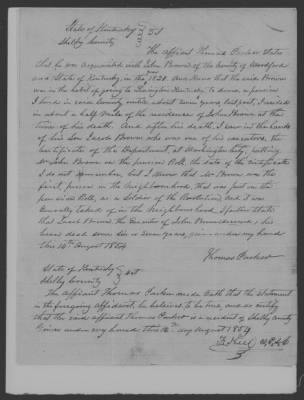 State of Kentucky
Shelby County } Sct
The affiant Thomas Parker States
that he was acquainted with John Brown of the County of Woodford
and State of Kentucky, in the year 1821. And knew that the said Brown
was in the habit of going to Lexington Kentucky to draw a pension
I lived in said County until about seven years last past, I resided
in about a half mile of the residence of John Brown at the
time of his death. And after his death, I saw in the hands
of his son Jacob Brown who was one of his executors, the
certificate of the Department, at Washington City, putting
Mr John Brown on the pension Roll, the date of the certificate
I do not remember, but I know that Mr Brown was the
first person in the neighbourhood, that was put on the
pension Roll, as a Soldier of the Revolution, and it was
Generally talked of in the neighbourhood, I further state
that Brown the Executor of John Brown
been dead some six or seven years, given under my hand
this 14th August 1854
Thomas Parker
State of Kentucky
Shelby County } Sct
The affiant Thomas Parker made oath that the Statement
in the foregoing Affidavit, he believes to be true, and as certify
that the said affiant Thomas Parker is a resident of Shelby County
Given under my hand this 14th day August 1854